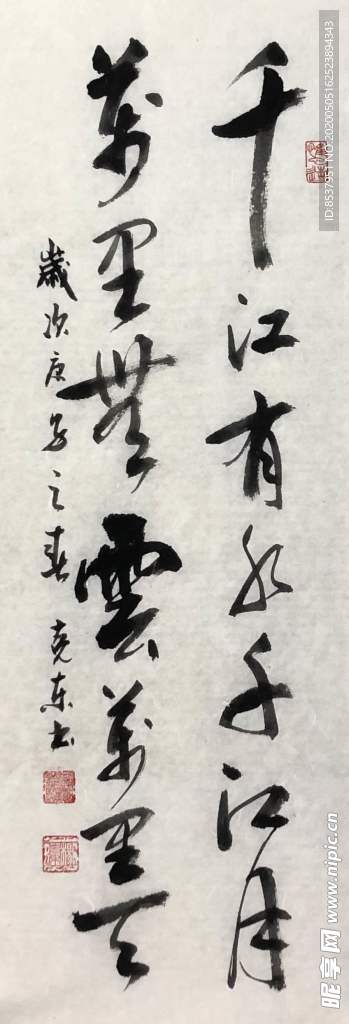 千江有水千江月
萬里無雲萬里天
歲次庚子之春 克東书
ID:8537951 NO:20200505162523894343
昵享网 www.nipic.cn